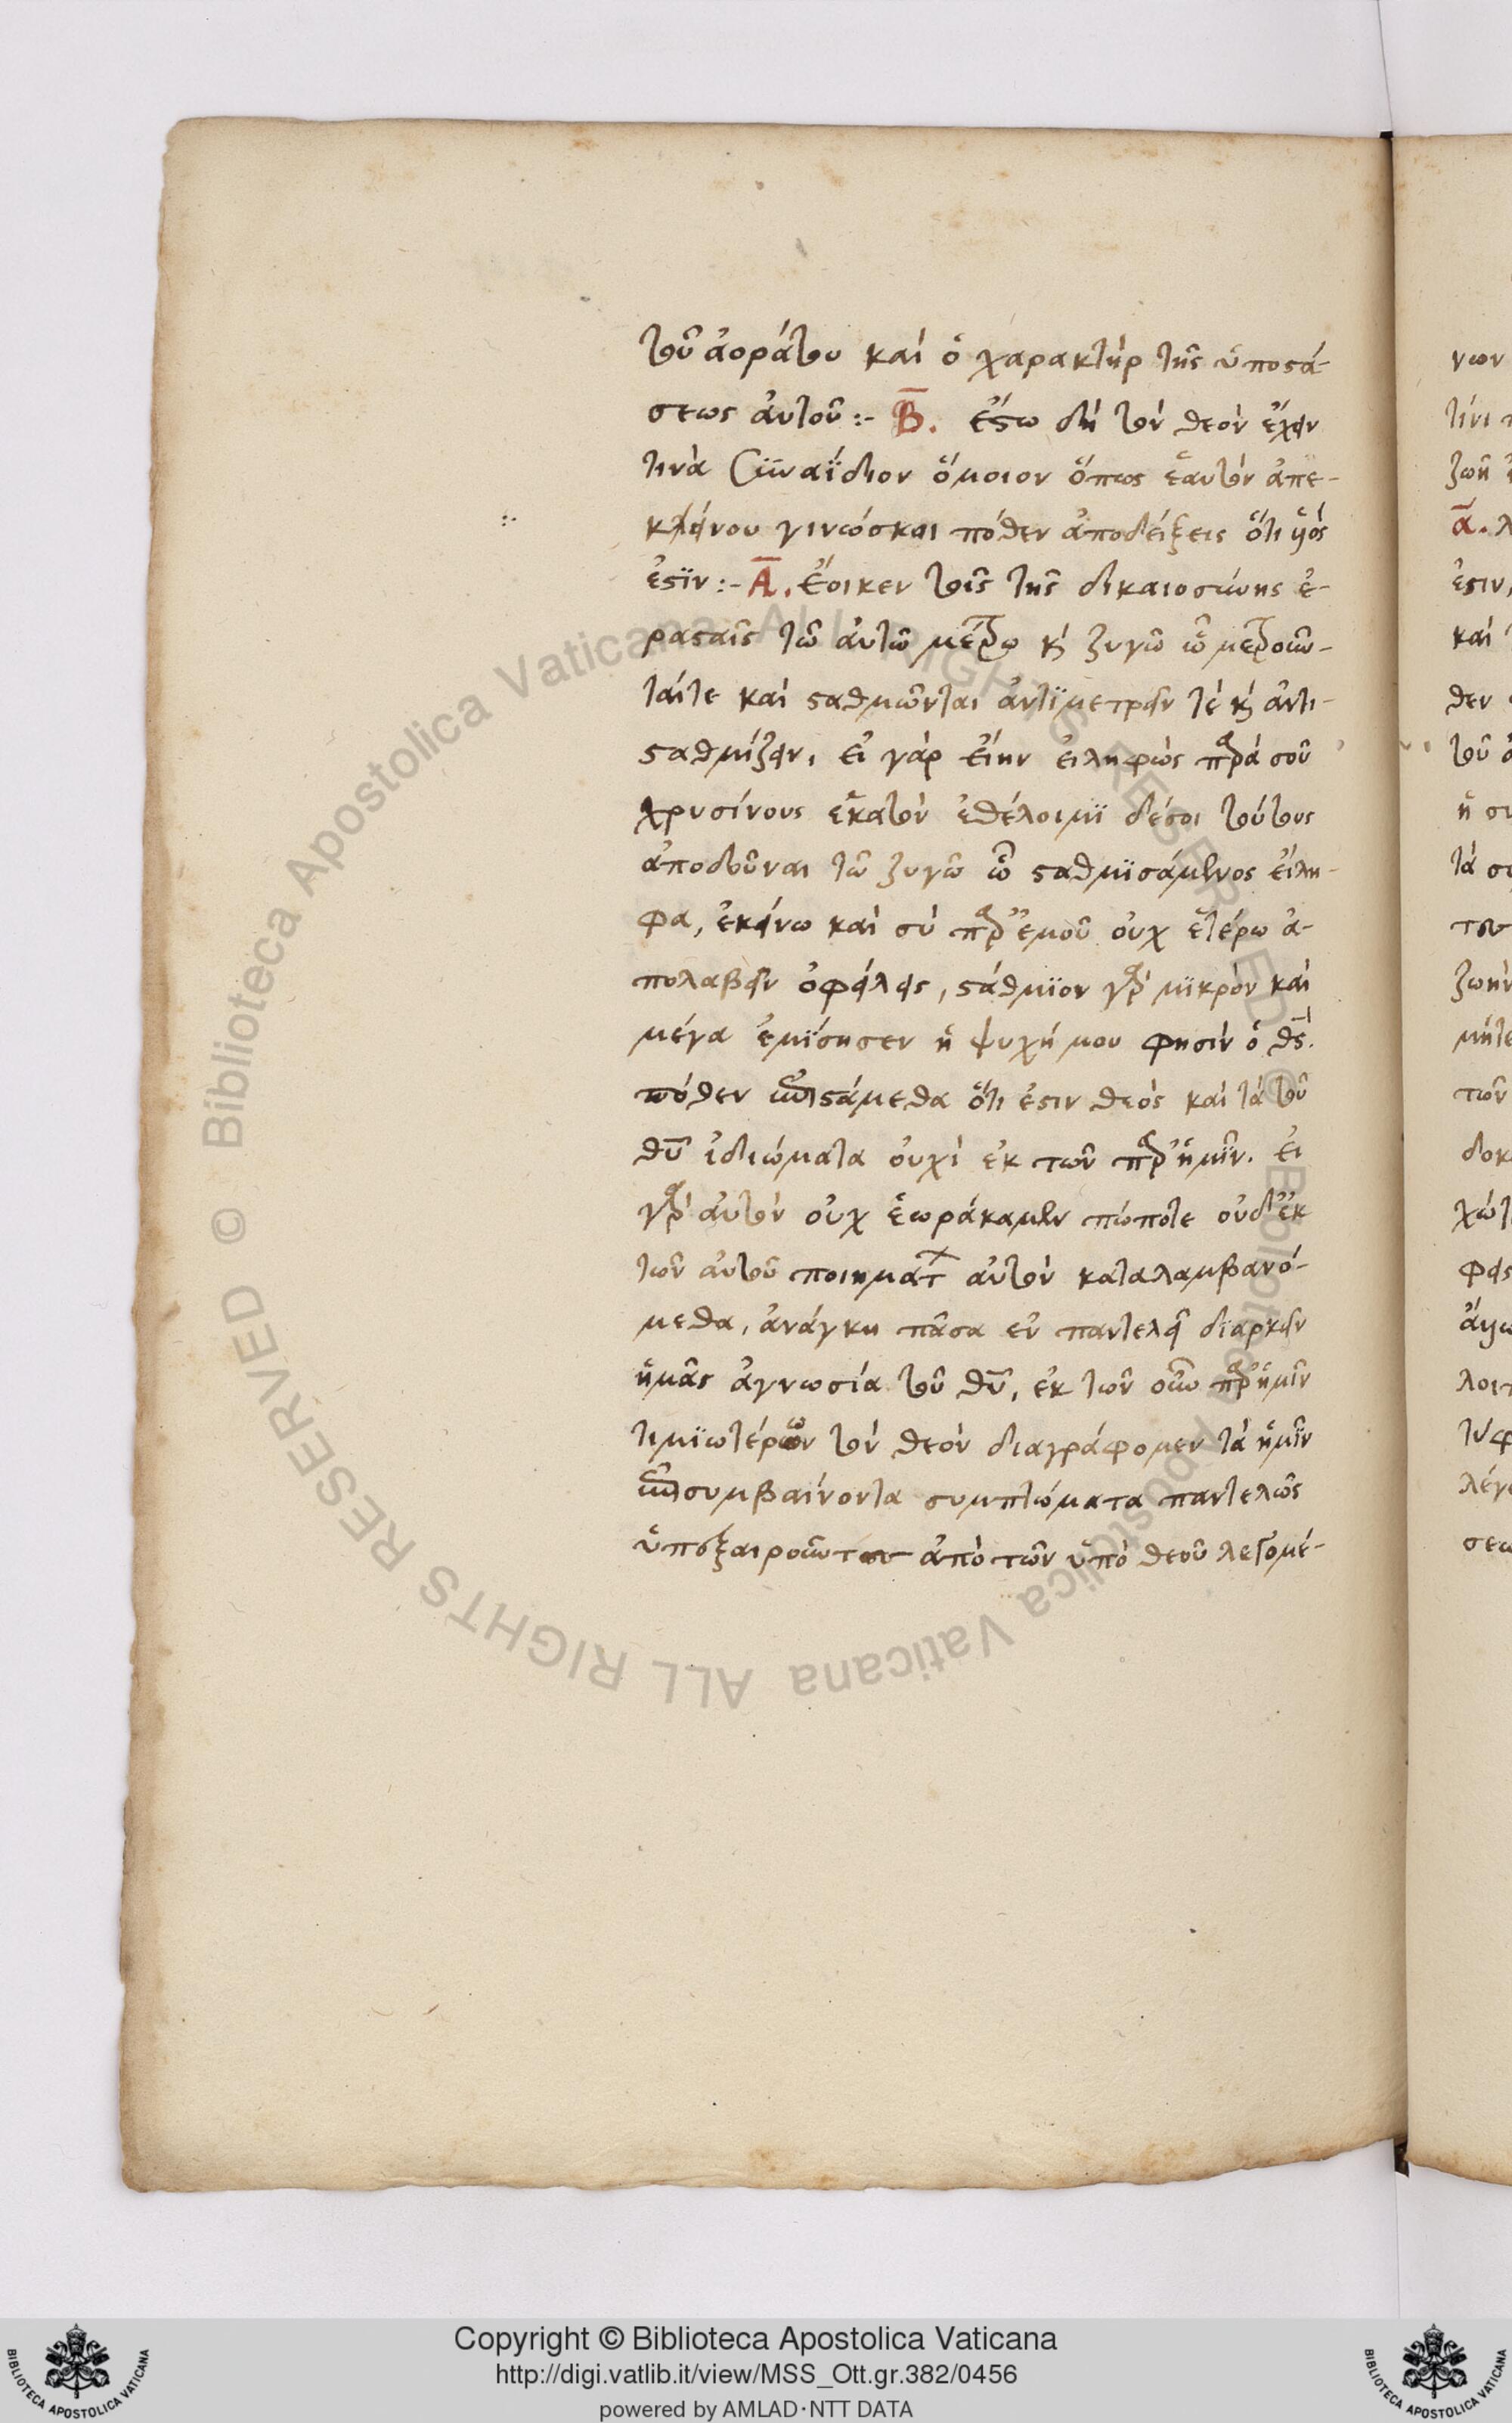 τοῦ ἀοράτου καὶ ὁ χαρακτὴρ τῆς ὑποστά-
σεως ἀυτοῦ :- Β̅. ἔστω δὴ τὸν θεὸν ἔχειν
τινὰ συναΐδιον ὅμοιον ὅπως ἑαυτὸν ἀπ᾽ ἐ-
κείνου γινώσκοι πόθεν ἀποδείξεις ὅτι υἱός
ἐστϊν :- Α̅. ἔοικεν τοῖς τῆς δικαιοσύνης ἐ-
ρασταῖς τῶ αὐτῶ μέτρω κ̀ ζυγῶ ὧ μετροῦν-
ταίτε καὶ σταθμῶνται ἀντϊμετρεῖν τὲ κ̀ ἀντι-
σταθμίζειν, εἰ γὰρ εἴην εἰληφὼς παρά σοῦ
χρυσίνους ἑκατὸν ἐθέλοιμϊ δέσοι τούτους
ἀποδοῦναι τῶ ζυγῶ ὧ σταθμϊσάμενος εἴλη-
φα, ἐκείνω καὶ σὺ παρ᾽ ἐμοῦ οὐχ ἑτέρω ἀ-
πολαβεῖν ὀφείλεις, στάθμϊον γὰρ μϊκρὸν καὶ
μέγα ἐμίσησεν ἡ ψυχή μου φησὶν ὁ θς̅.
πόθεν ἐπιστάμεθα ὅτι ἐστιν θεὸς καὶ τὰ τοῦ
θυ̅ ἰδιώματα οὐχὶ ἐκ τῶν παρ᾽ ἡμῖν. εἰ
γὰρ αὐτὸν οὐχ ἑωράκαμεν πώποτε οὐδ᾽ ἐκ
τῶν αὐτοῦ ποιημάτ αὐτὸν καταλαμβανό-
μεθα, ἀνάγκη πᾶσα ἐν παντελεῖ διαρκεῖν
ἡμᾶς ἀγνωσία τοῦ θυ̅, ἐκ τῶν οὖν παρ᾽ ἡμῖν
τιμϊωτέρων τὸν θεὸν διαγράφομεν τὰ ἡμῖν
ἐπισυμβαίνοντα συμπτώματα παντελῶς
ὑπεξαιροῦντες ἀπὸ τῶν ὑπὸ θεοῦ λεγομέ-
Copyright © Biblioteca Apostolica Vaticana
http://digi.vatlib.it/view/MSS_Ott.gr.382/0456
powered by AMLAD·NTT DATA